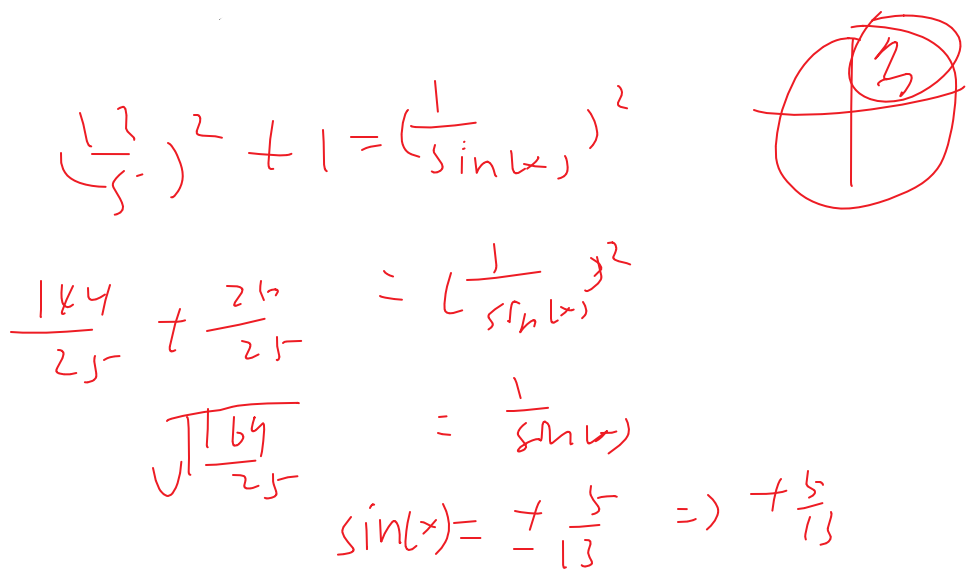 (12/5)^2 + 1 = (1/sin(x))^2
3
144/25 + 25/25 = (1/sin(x))^2
√(169/25) = 1/sin(x)
sin(x) = ± 5/13 => + 5/13